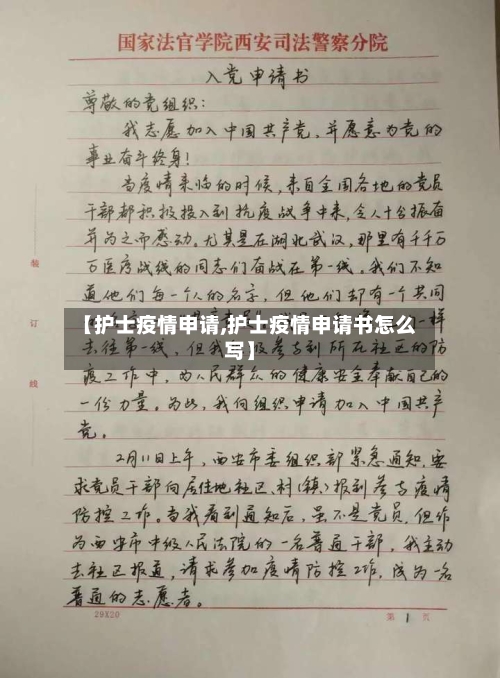 国家法官学院西安司法警察分院
入党申请书
尊敬的党组织：
我志愿加入中国共产党，并愿意为党的
事业奋斗终身！
当疫情来临的时候，来自全国各地的党员
干部都积极投入到抗疫战争中来，令人十分振奋
并为之而感动。尤其是在湖北武汉，那里有千千万
万医疗战线的同志们奋战在第一线。我们不知
道他们每一个人的名字，但他们却有一个共同
【护士疫情申请,护士疫情申请书怎么
写】
一样
去往第一线，但我
参与到所在社区的防
疫工作中，为人民群众的健康安全奉献自己的
一份力量。为此，我向组织申请加入中国共产
党。
2月11日上午，西安市委组织部紧急通知，要
求党员干部向居住地社区、村（镇）报到参与疫情
防控工作。当我看到通知后，虽不是党员，但作
为西安市中级人民法院的一名普通干部，我主动
去社区报道，请求参加疫情防控工作，成为一名
普通的志愿者。
装
订
线
29X20
第 1 页